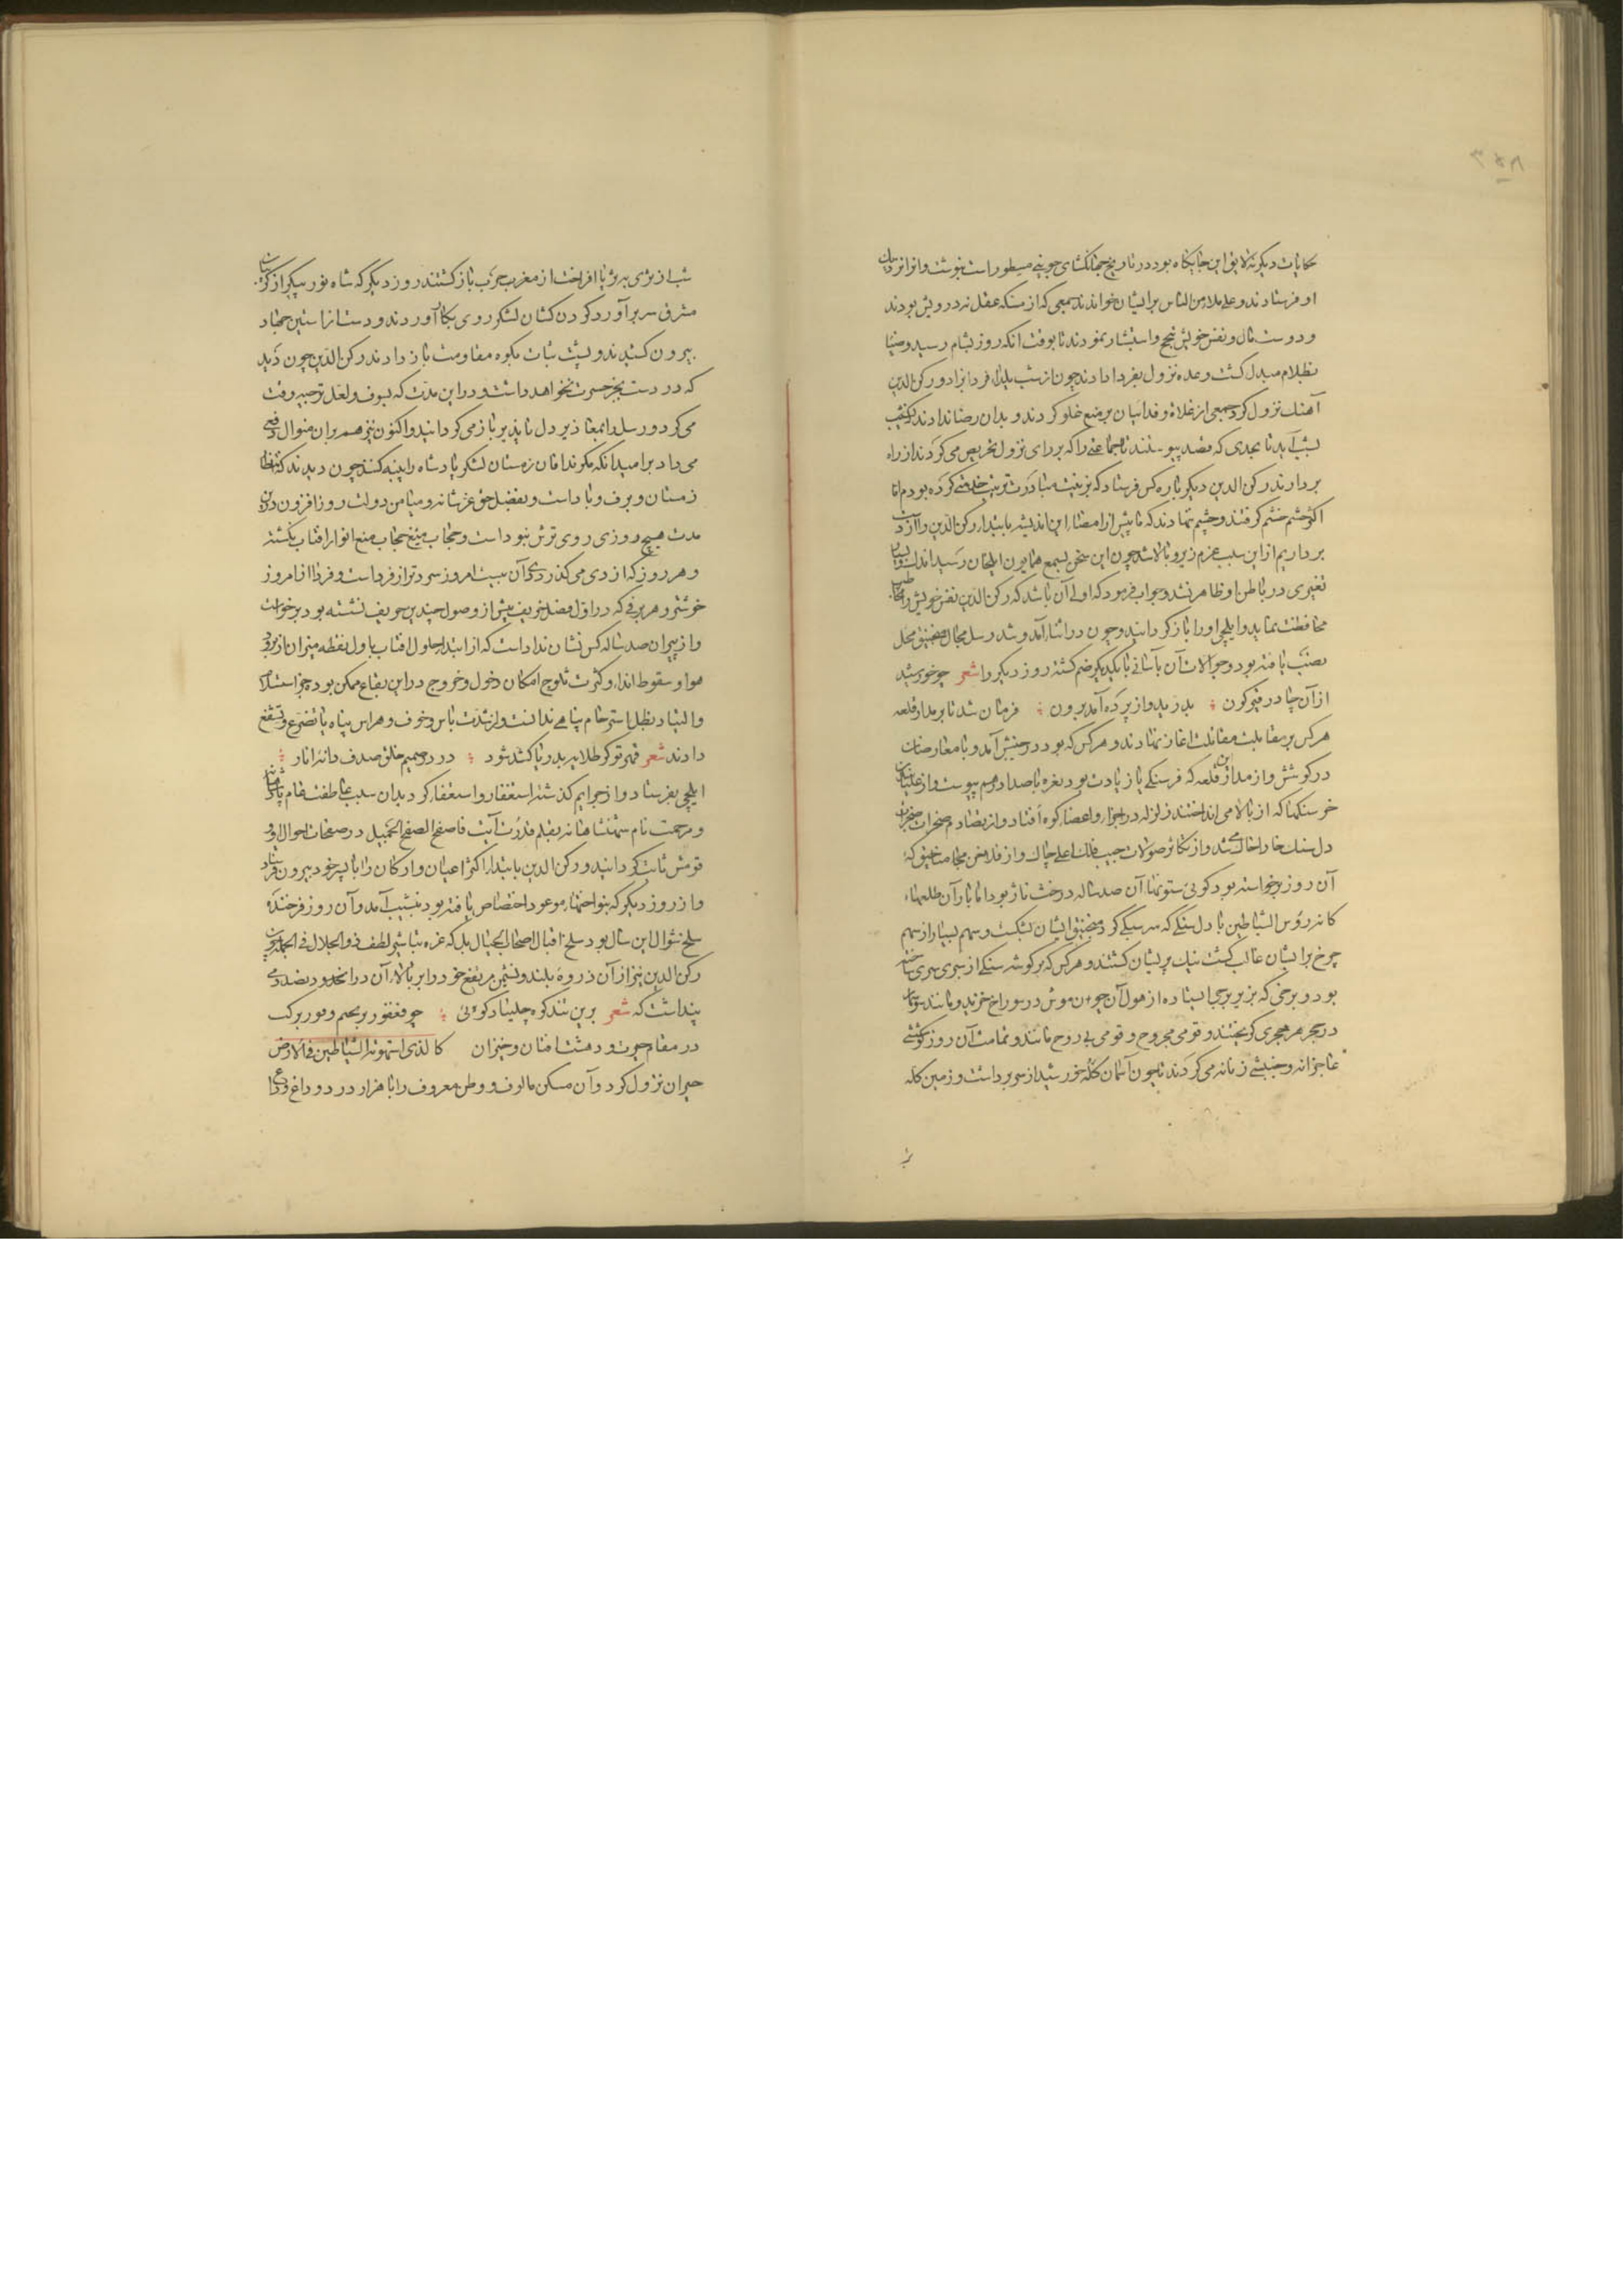 ۳۵۸
حکایات دیگر نه لایق این جایگاه بود در تاریخ جهانگشای جوینی مسطور است بنوشت و آنرا نزدیک
او فرستادند و علی ملاء من الناس بر ایشان خواندند جمعی که از مسکه عقل نه درویش بودند
و دوست مال و نفس خویش و استبشار نمودند تا بوقت آنکه روز بشام رسید و ضیا
بظلام مبدل گشت وعده نزول بفردا دادند چون از شب یلدا فردا بزاد و رکن الدین
آهنگ نزول کرد جمعی از غلاة و فدائیان بر منع غلو کردند و بدان رضا ندادند که
تا بحدی که قصد پیوستند تا جماعتی را که بر رای نزول تحریض می کردند از راه
بردارند رکن الدین دیگر باره کس فرستاد که بزینت مبادرت ترتیب خدمتی کرده بودم اما
اکثر حشم خشم گرفتند و چشم نهادند که تا پیش از امضاء این اندیشه بابتدا رکن الدین را از
برداریم از این سبب عزم زیر و بالا شد چون این سخن بسمع همایون ایلخان رسید
تغیری در باطن او ظاهر نشد و جواب فرمود که اولی آن باشد که رکن الدین نفس خویش را
محافظت نماید و ایلچی او را باز گردانید و چون در اثناء آمد و شد رسل مجال منجنیق محل
نصب یافته بود و حوالات آن بآسانی با یکدیگر ضم گشته روز دیگر را شعر چو خورشید
از آن چادر قیرگون ؛ بدرید و از پرده آمد برون ؛ فرمان شد تا بر مدار قلعه
هر کس بر مقابلت مقاتلت آغاز نهادند و هر کس که بود در جنبش آمد و با معارضان
در کوشش و از مدار این قلعه که فرسنگی یا زیادت بود نعره با صدا در هم پیوست و از
خرسنگها که از بالا می انداختند زلزله در اجزاء و اعضاء کوه افتاد و از تصادم صخرات
دل سنگ خارا خاک می شد و از تکاثر صولات جیب فلک اعلی چاک و از مجانیق که
آن روز برخواسته بود گوئی ستونها آن صدساله درخت ناژ بود اما بار آن طلعها
کانه رؤس الشیاطین با دل سنگی که منجنیق ایشان بشکست و سهم بسیار از سهم
چرخ بر ایشان غالب گشت نیک پریشان گشتند و هر کس که بر گوشه سنگی از سپری
بود و برخی که بزیر برجی ایستاده از هول آن چون موش در سوراخ خزید و مانند سوسمار
در حجر هر حجری گریختند و قومی مجروح و قومی بی روح ماندند و تمامت آن روز کوششی
عاجزانه و جنبشی زنانه می کردند تا چون آسمان کله خورشید از سر برداشت و زمین کله
شب از ثری بثریا افراخت از مغرب حرب باز گشتند روز دیگر که شاه نور پیکر از
مشرق سر برآورد گردن کشان لشکر روی بکار آوردند و دست از آستین جهاد
بیرون کشیدند و پشت ثبات بکوه مقاومت باز دادند رکن الدین چون دید
که در دست بجز حسرت نخواهد داشت و در این مدت که بسوف و لعل ترجیه وقت
می کرد و رسل را بمعاذیر دل ناپذیر باز می گردانید و اکنون نیز هم بران منوال
می داد بر امید آنکه مگر ندافان زمستان لشکر پادشاه را پنبه کنند چون دیدند که
زمستان و برف و باد است و بفضل حق عز شانه و میامن دولت روز افزون در این
مدت هیچ روزی روی ترش نبود است و حجاب میغ حجاب منع انوار آفتاب نگشته
و هر روز که از دی می گذرد امروز سردتر از فرداست و فردا از امروز
خوشتر و هر برفی که در اول فصل خریف پیش از وصول چندین حریف نشسته بود برخواست
و از پیران صدساله کس نشان نداد است که از ابتدا حلول آفتاب باول نقطه میزان از برودت
هوا و سقوط انداء و کثرت ثلوج امکان دخول و خروج در این بقاع ممکن بوده جز استسلام
و التیاذ بظل استرحام پناهی ندانست و از شدت باس و خوف و هراس پناه با تضرع و تشفع
دادند شعر قهر تو گر طلایه بدریا کشد شود ؛ در در صمیم حلق صدف دانه انار ؛
ایلچی بفرستاد و از جرایم گذشته استغفار و استعفا کرد بدان سبب عاطفت
و مرحمت نام شهنشاهانه بقلم قدرت آیت فاصفح الصفح الجمیل در صفحات احوال او و
قومش ثابت گردانید و رکن الدین بابتدا اکثر اعیان و ارکان را با پسر خود بیرون فرستاد
و از روز دیگر که بنواختها موعود اختصاص یافته بود بنشیب آمد و آن روز فرخنده
سلخ شوال این سال بود سلخ اقبال اصحاب الجبال بل که غره تباشیر لطف ذو الجلال
رکن الدین نیز از آن ذروه بلند و نشیمن مرتفع خود را بر بالاء آن
پنداشت که شعر برین تند کوه چلیپاد گوئی ؛ چو فغفور بر تختم و فور بر کت
در مقام حیرت و دهشت افتان و خیزان کالذی استهوته الشیاطین فی الارض
حیران نزول کرد و آن مسکن مالوف و وطن معروف را با هزار درد و داغ